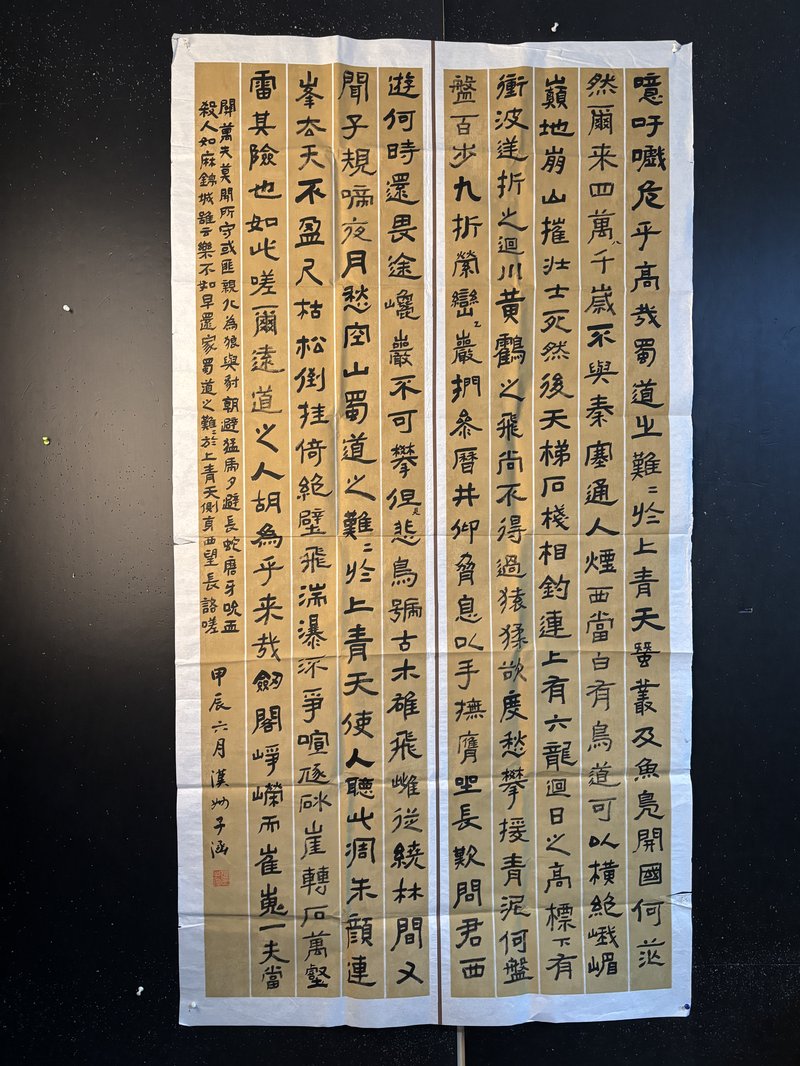 噫吁嚱危乎高哉蜀道之難〻於上青天蠶叢及魚鳧開國何茫
然爾来四萬八千歲不與秦塞通人煙西當白有鳥道可以橫絶峨嵋
巔地崩山摧壯士死然後天梯石棧相鈎連上有六龍迴日之高標下有
衝波逆折之迴川黄鶴之飛尚不得過猿猱欲度愁攀援青泥何盤
盤百步九折縈巒〻巖捫參曆井仰脅息以手撫膺坐長歎問君西
遊何時還畏途巉巖不可攀但見悲鳥號古木雄飛雌從繞林間又
聞子規啼夜月愁空山蜀道之難〻於上青天使人聽此凋朱顔連
峯去天不盈尺枯松倒挂倚絶壁飛湍瀑流爭喧豗砯崖轉石萬壑
雷其險也如此嗟爾遠道之人胡為乎来哉劒閣崢嶸而崔嵬一夫當
關萬夫莫開所守或匪親化為狼與豺朝避猛虎夕避長蛇磨牙吮血
殺人如麻錦城雖云樂不如早還家蜀道之難〻於上青天側身西望長諮嗟
甲辰六月漢州子涵